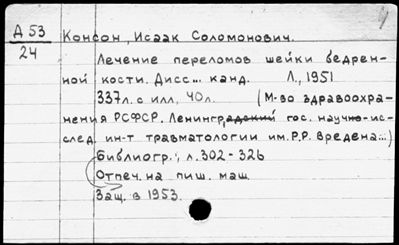 Д 53
24
Консон, Исаак Соломонович.
Лечение переломов шейки бедрен-
ной кости. Дисс... канд. Л., 1951
337л. с илл, 40л. (М-во здравоохра-
нения РСФСР. Ленинградский гос. научно-ис-
след. ин-т травматологии им. Р.Р. Вредена...)
Библиогр.: л. 302-326
Отпеч. на пиш. маш.
Защ. в 1953.